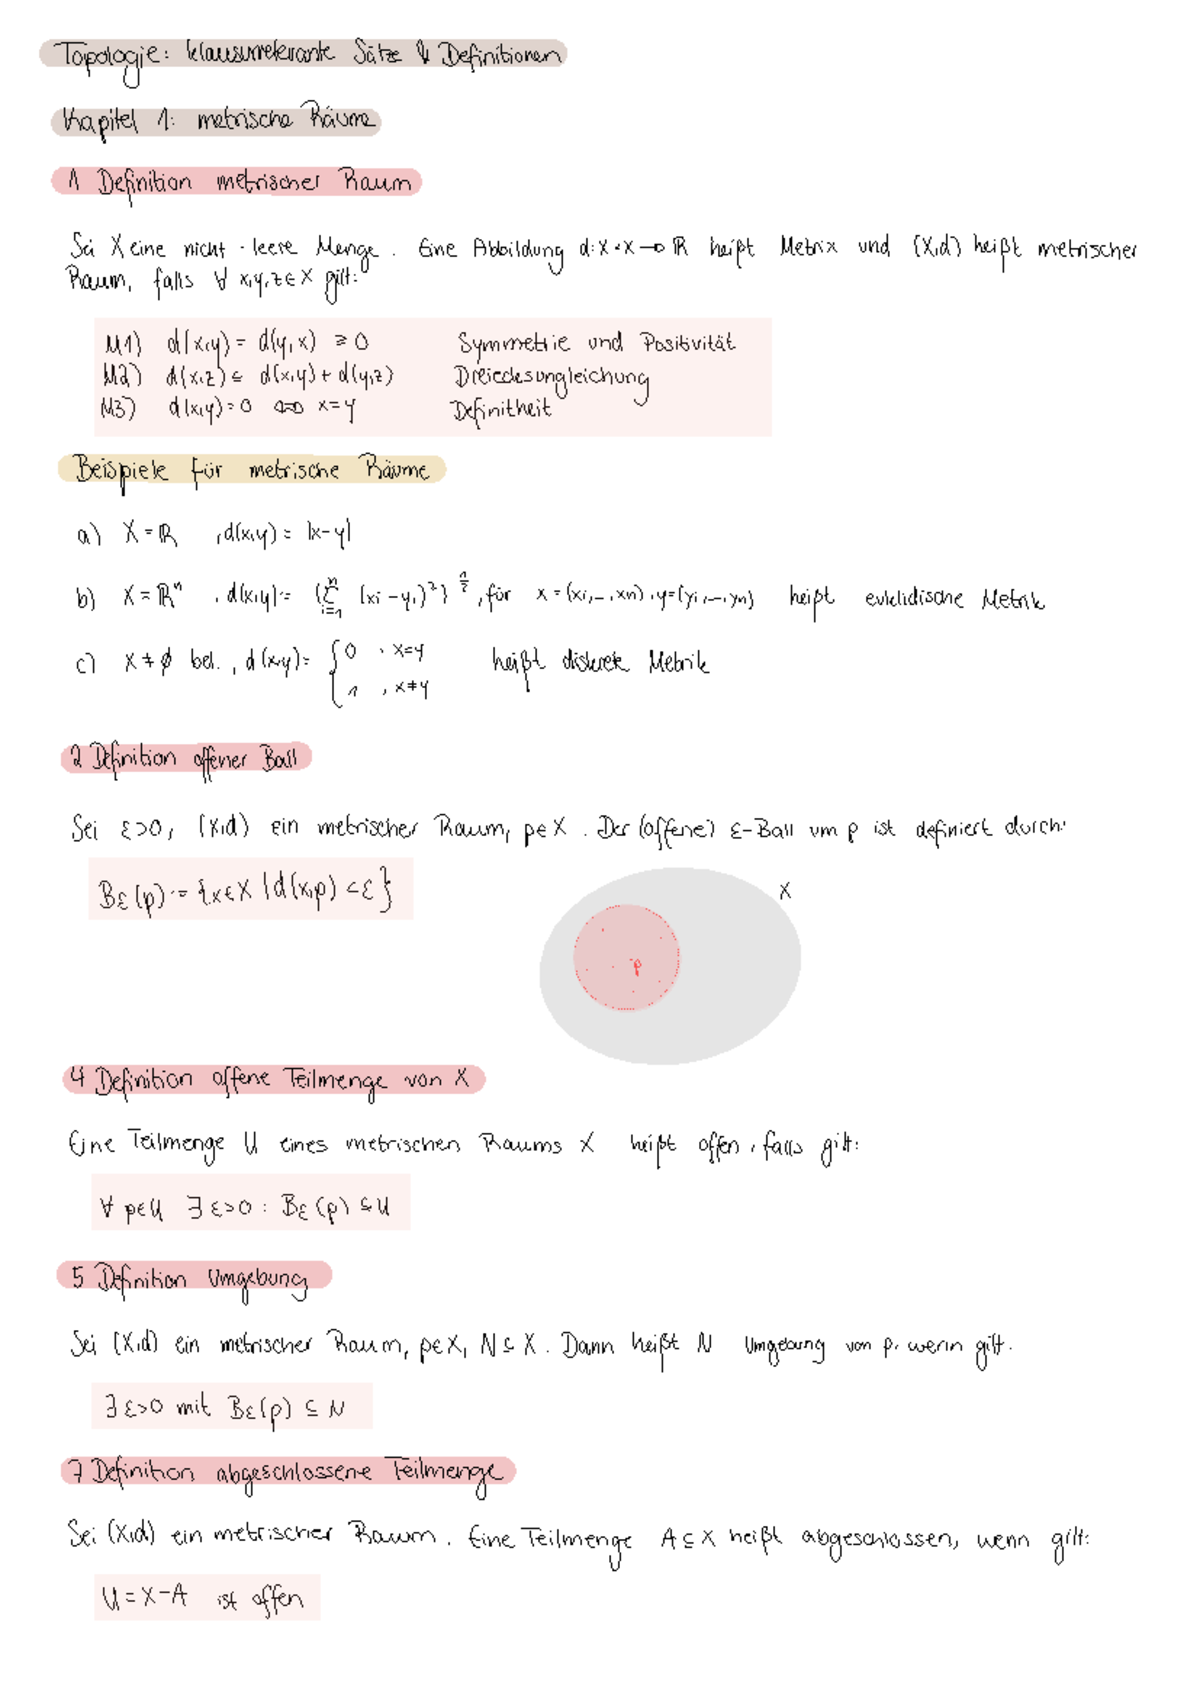 Topologie: klausurrelevante Sätze & Definitionen
Kapitel 1: metrische Räume
1 Definition metrischer Raum
Sei X eine nicht-leere Menge. Eine Abbildung d: X×X → ℝ heißt Metrix und (X,d) heißt metrischer
Raum, falls ∀ x,y,z ∈ X gilt:
M1) d(x,y) = d(y,x) ≥ 0 Symmetrie und Positivität
M2) d(x,z) ≤ d(x,y) + d(y,z) Dreiecksungleichung
M3) d(x,y) = 0 ⇔ x=y Definitheit
Beispiele für metrische Räume
a) X = ℝ , d(x,y) = |x-y|
b) X = ℝⁿ , d(x,y) = (∑ⁿᵢ₌₁ (xi - yi)²)^½ , für x = (x1,...,xn), y = (y1,...,yn) heißt euklidische Metrik
c) X ≠ ∅ bel. , d(x,y) = { 0 , x=y heißt diskrete Metrik
1 , x≠y
2 Definition offener Ball
Sei ε>0, (X,d) ein metrischer Raum, p∈X. Der (offene) ε-Ball um p ist definiert durch:
Bε(p) := {x∈X | d(x,p) < ε}
X
p
4 Definition offene Teilmenge von X
Eine Teilmenge U eines metrischen Raums X heißt offen, falls gilt:
∀ p∈U ∃ ε>0 : Bε(p) ⊆ U
5 Definition Umgebung
Sei (X,d) ein metrischer Raum, p∈X, N ⊆ X. Dann heißt N Umgebung von p, wenn gilt.
∃ ε>0 mit Bε(p) ⊆ N
7 Definition abgeschlossene Teilmenge
Sei (X,d) ein metrischer Raum. Eine Teilmenge A ⊆ X heißt abgeschlossen, wenn gilt:
U = X-A ist offen